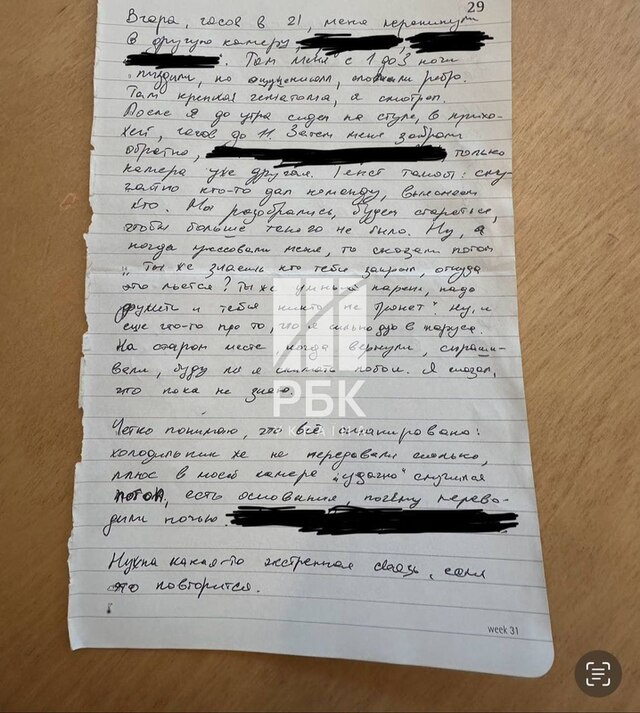 29
Вчера, часов в 21, меня перекинули
в другую камеру,
Там меня с 1 до 3 ночи
пиздили, но ощущениям, сломали ребро.
Там крепкая гематома, я смотрел.
После я до утра сидел на стуле, в прихо-
жей, часов до 11. Затем меня забрали
обратно, только
камера уже другая. Текст такой:
кто-то дал команду, выясняем
кто. Мы разобрались, будем стараться,
чтобы больше такого не было. Ну, а
когда меня, то сказали потом
"Ты же знаешь кто тебя закрыл, откуда
это льется? Ты же умный парень, надо
и тебя никто не тронет". Ну, и
еще что-то про то, что я сильно дую в паруса.
На старом месте, когда вернули, спраши-
вали, буду ли я снимать побои. Я сказал,
что пока не знаю.
РБК
УКРАЇНА
Четко понимаю, что всё спланировано:
холодильник же не передавали сколько,
плюс в моей камере "удачно" случился
потоп, есть основания, почему перево-
дили ночью
Нужна какая-то экстренная связь, если
это повторится.
week 31